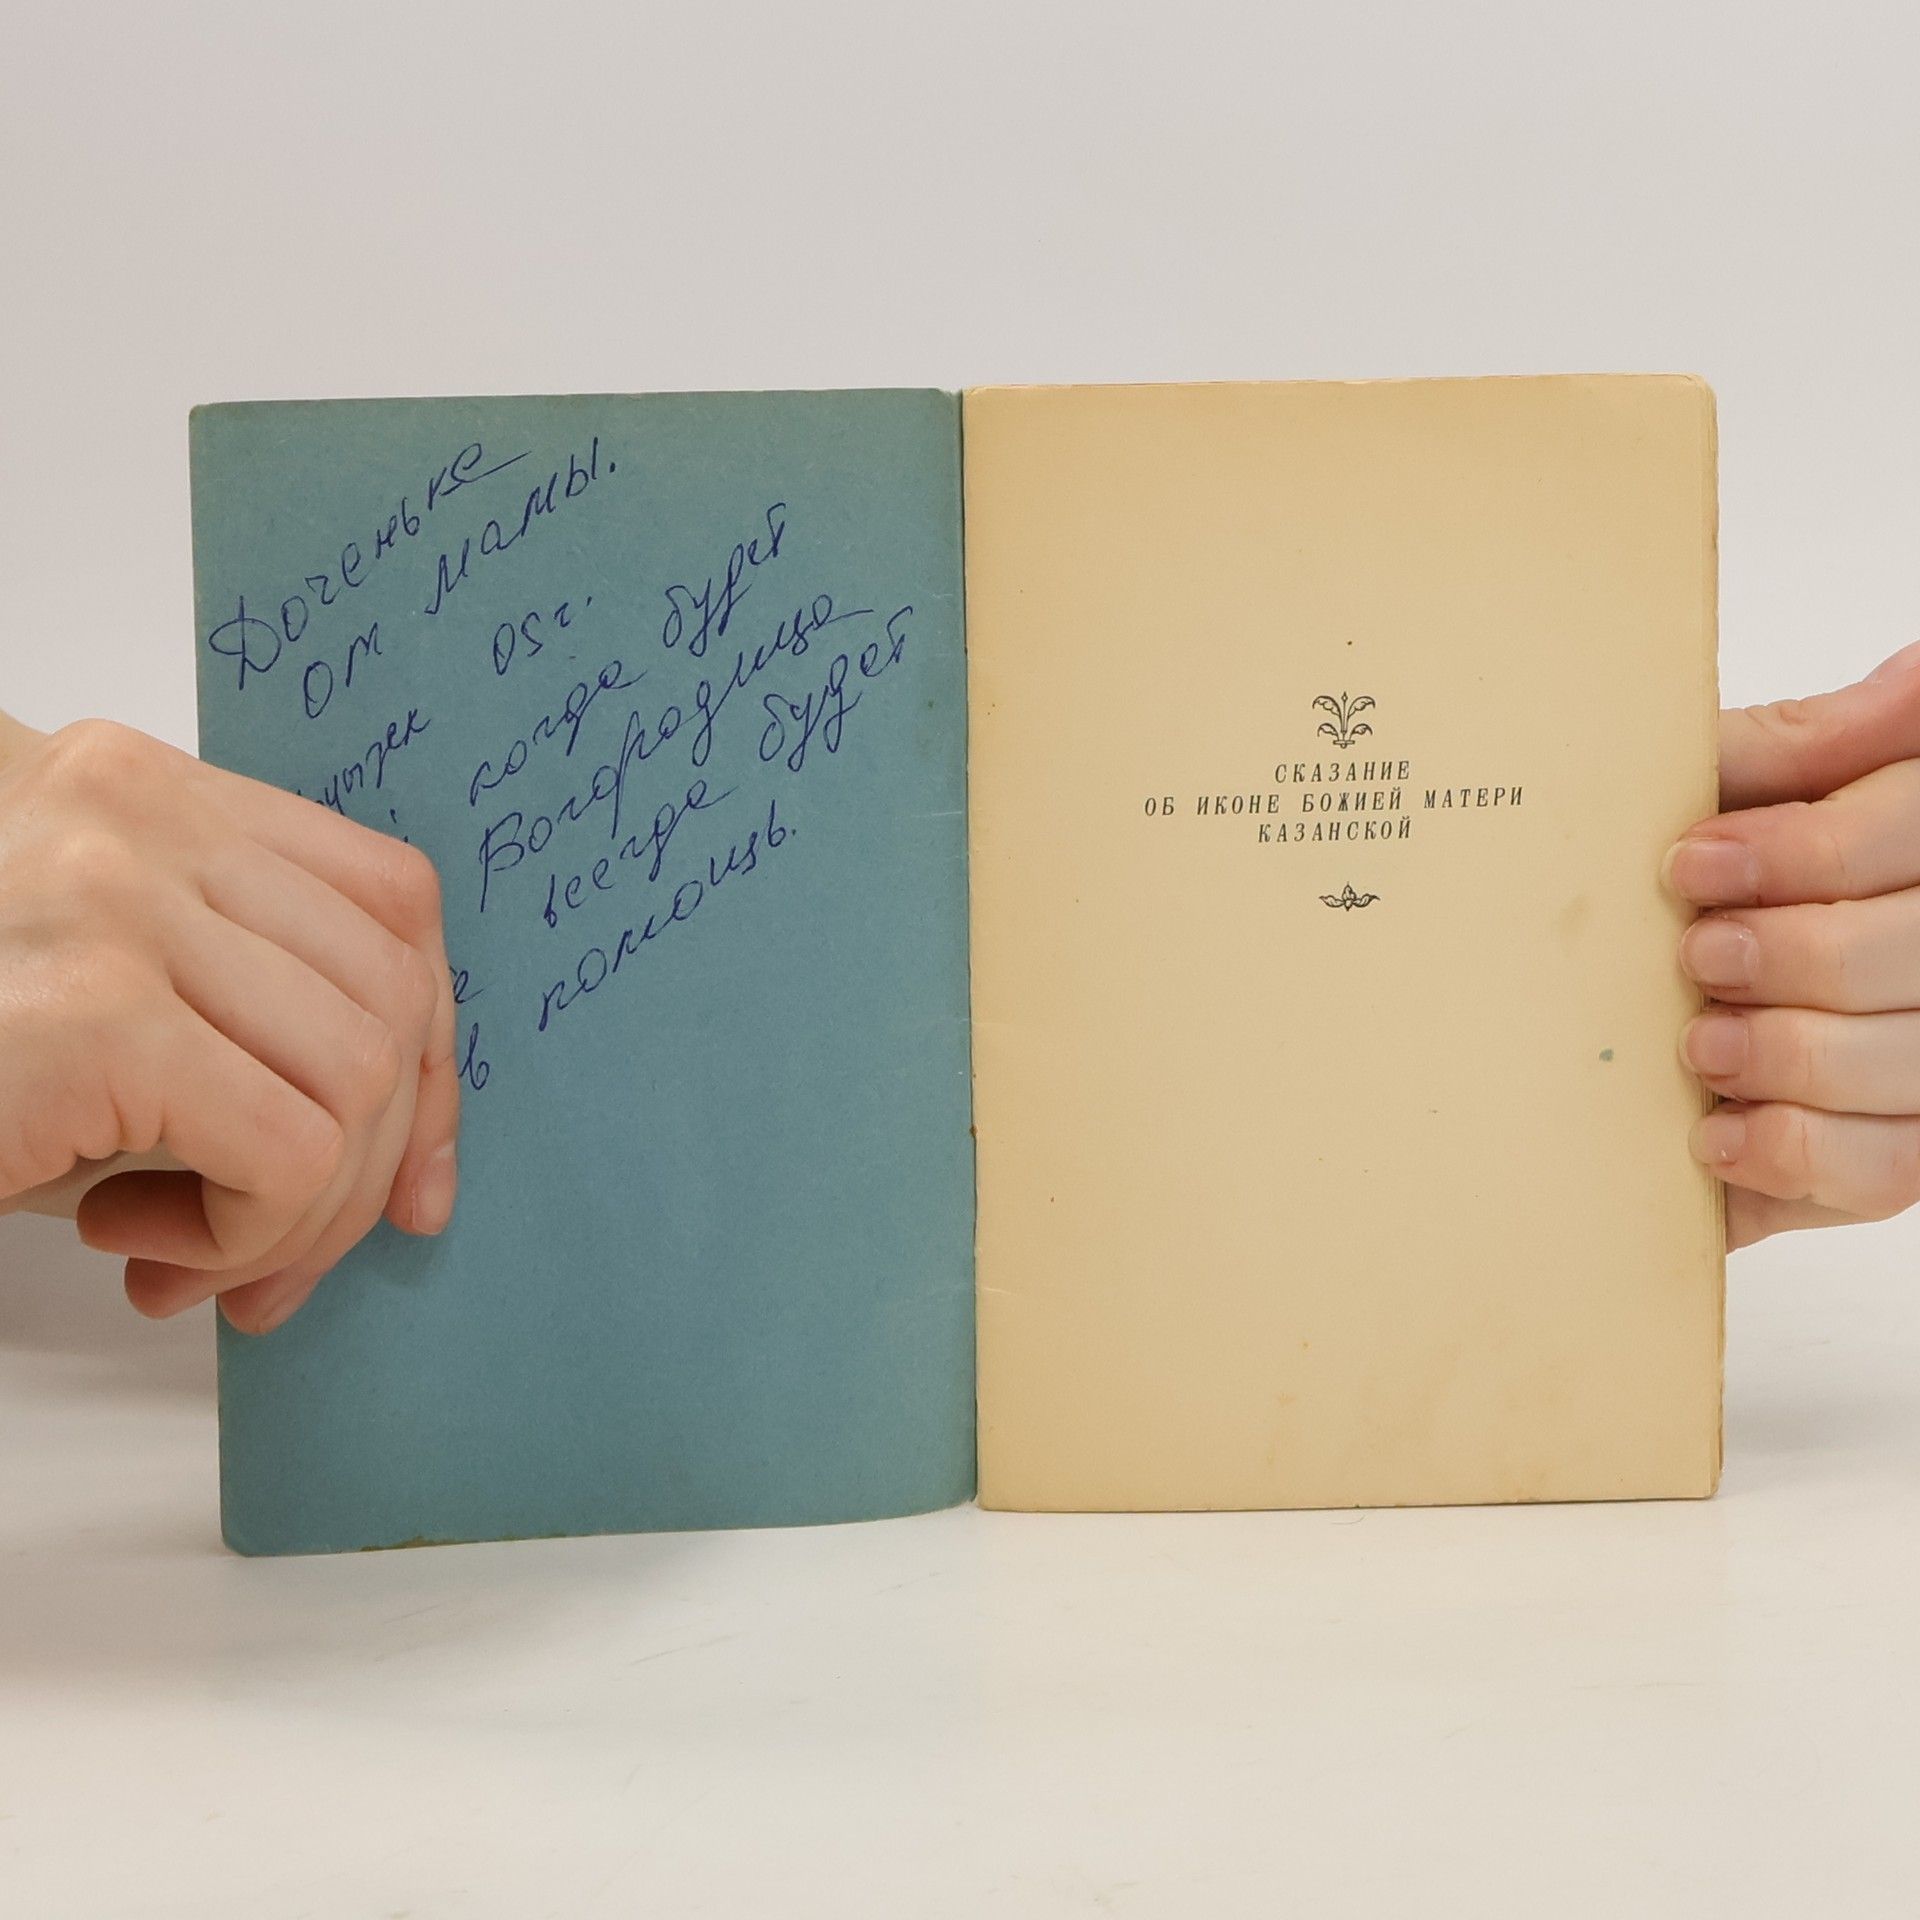 Доченьке
от мамы.
05г.
когда будет
Богородица
всегда будет
в помощь.
СКАЗАНИЕ
ОБ ИКОНЕ БОЖИЕЙ МАТЕРИ
КАЗАНСКОЙ